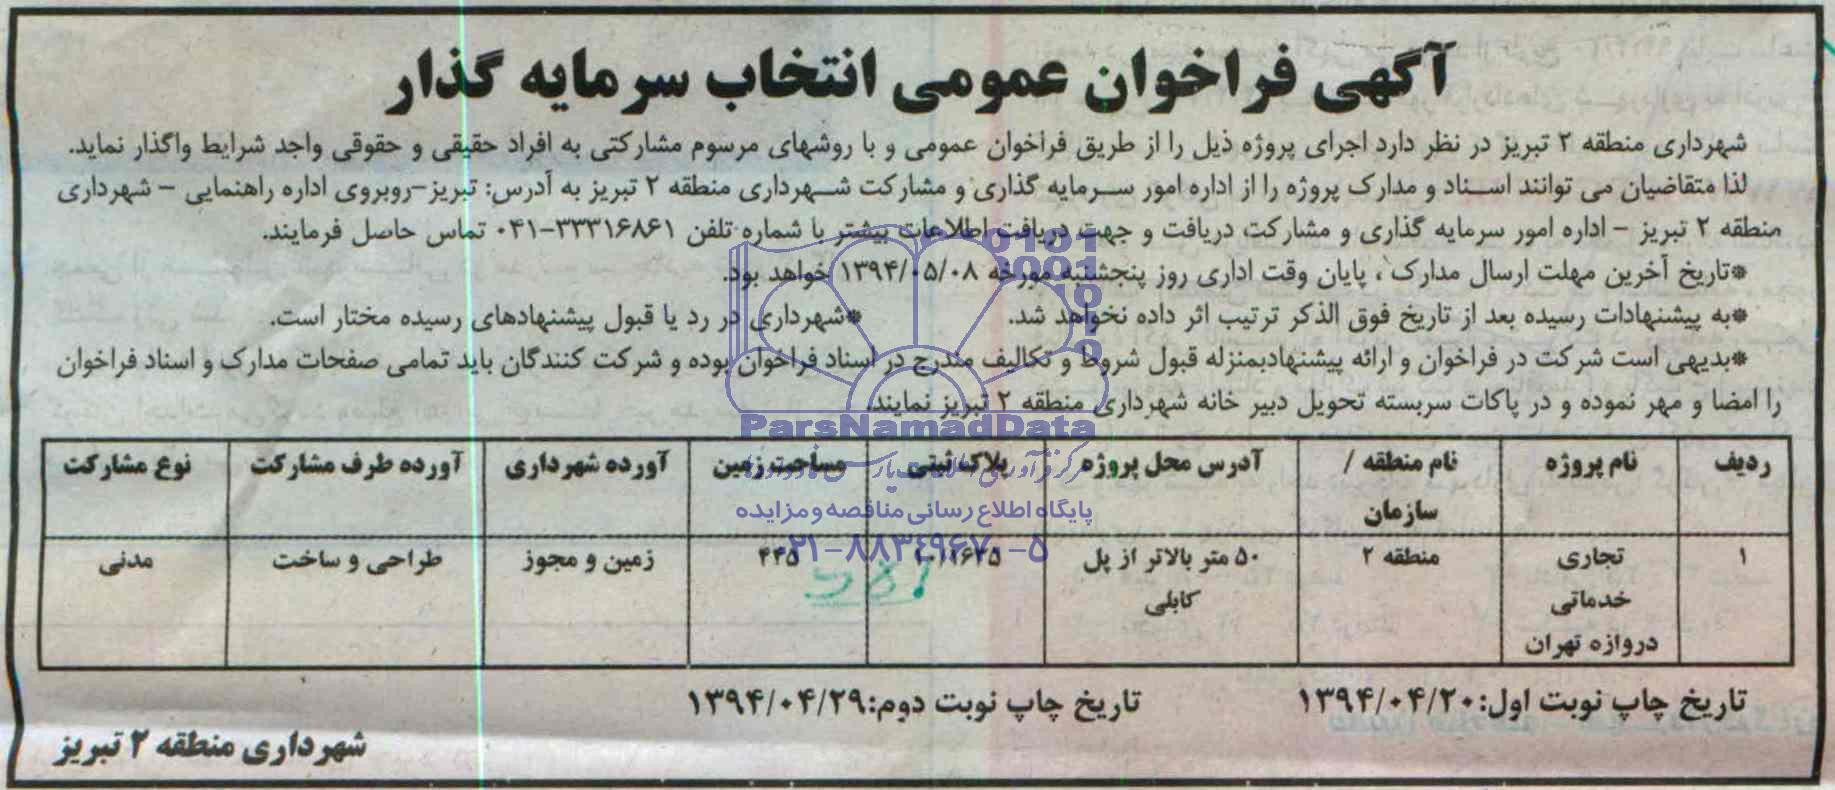 آگهی فراخوان عمومی انتخاب سرمایه گذار
شهرداری منطقه ۲ تبریز در نظر دارد اجرای پروژه ذیل را از طریق فراخوان عمومی و با روشهای مرسوم مشارکتی به افراد حقیقی و حقوقی واجد شرایط واگذار نماید.
لذا متقاضیان می توانند اسناد و مدارک پروژه را از اداره امور سرمایه گذاری و مشارکت شهرداری منطقه ۲ تبریز به آدرس: تبریز-روبروی اداره راهنمایی - شهرداری
منطقه ۲ تبریز - اداره امور سرمایه گذاری و مشارکت دریافت و جهت دریافت اطلاعات بیشتر با شماره تلفن ۳۳۳۱۶۸۶۱-۰۴۱ تماس حاصل فرمایند.
*تاریخ آخرین مهلت ارسال مدارک، پایان وقت اداری روز پنجشنبه مورخه ۱۳۹۴/۰۵/۰۸ خواهد بود.
*به پیشنهادات رسیده بعد از تاریخ فوق الذکر ترتیب اثر داده نخواهد شد. *شهرداری در رد یا قبول پیشنهادهای رسیده مختار است.
*بدیهی است شرکت در فراخوان و ارائه پیشنهادبمنزله قبول شروط و تکالیف مندرج در اسناد فراخوان بوده و شرکت کنندگان باید تمامی صفحات مدارک و اسناد فراخوان
را امضا و مهر نموده و در پاکات سربسته تحویل دبیر خانه شهرداری منطقه ۲ تبریز نمایند.
ParsNamadData
ردیف نام پروژه نام منطقه / آدرس محل پروژه پلاک ثبتی مساحت زمین آورده شهرداری آورده طرف مشارکت نوع مشارکت
سازمان
پایگاه اطلاع رسانی مناقصه و مزایده
۰۲۱-۸۸۳۴۹۶۷۰-۵
۱ تجاری منطقه ۲ ۵۰ متر بالاتر از پل ۴۴۵ زمین و مجوز طراحی و ساخت مدنی
خدماتی کابلی
دروازه تهران
تاریخ چاپ نوبت اول:۱۳۹۴/۰۴/۲۰ تاریخ چاپ نوبت دوم:۱۳۹۴/۰۴/۲۹
شهرداری منطقه ۲ تبریز